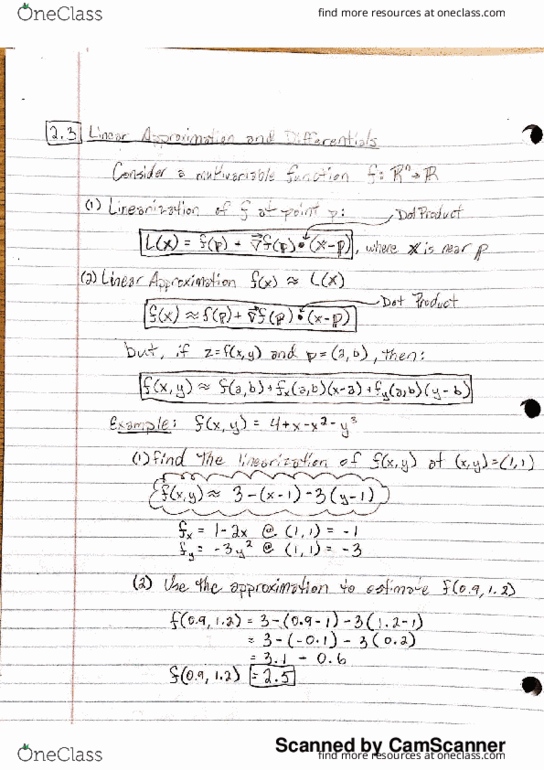 OneClass
find more resources at oneclass.com
2.3 Linear Approximation and Differentials
Consider a multivariable function f: ℝⁿ→ℝ
(1) Linearization of f at point p:
Dot Product
L(x) = f(p) + ∇f(p)•(x-p), where x is near p
(2) Linear Approximation f(x) ≈ L(x)
Dot Product
f(x) ≈ f(p) + ∇f(p)•(x-p)
but, if z=f(x,y) and p=(a,b), then:
f(x,y) ≈ f(a,b)+fₓ(a,b)(x-a)+f_y(a,b)(y-b)
Example: f(x,y) = 4+x-x²-y³
(1) Find the linearization of f(x,y) at (x,y)=(1,1)
f(x,y) ≈ 3-(x-1)-3(y-1)
fₓ = 1-2x @ (1,1) = -1
f_y = -3y² @ (1,1) = -3
(2) Use the approximation to estimate f(0.9,1.2)
f(0.9,1.2) = 3-(0.9-1)-3(1.2-1)
= 3-(-0.1)-3(0.2)
= 3.1 - 0.6
f(0.9,1.2) = 2.5
Scanned by CamScanner
OneClass
find more resources at oneclass.com